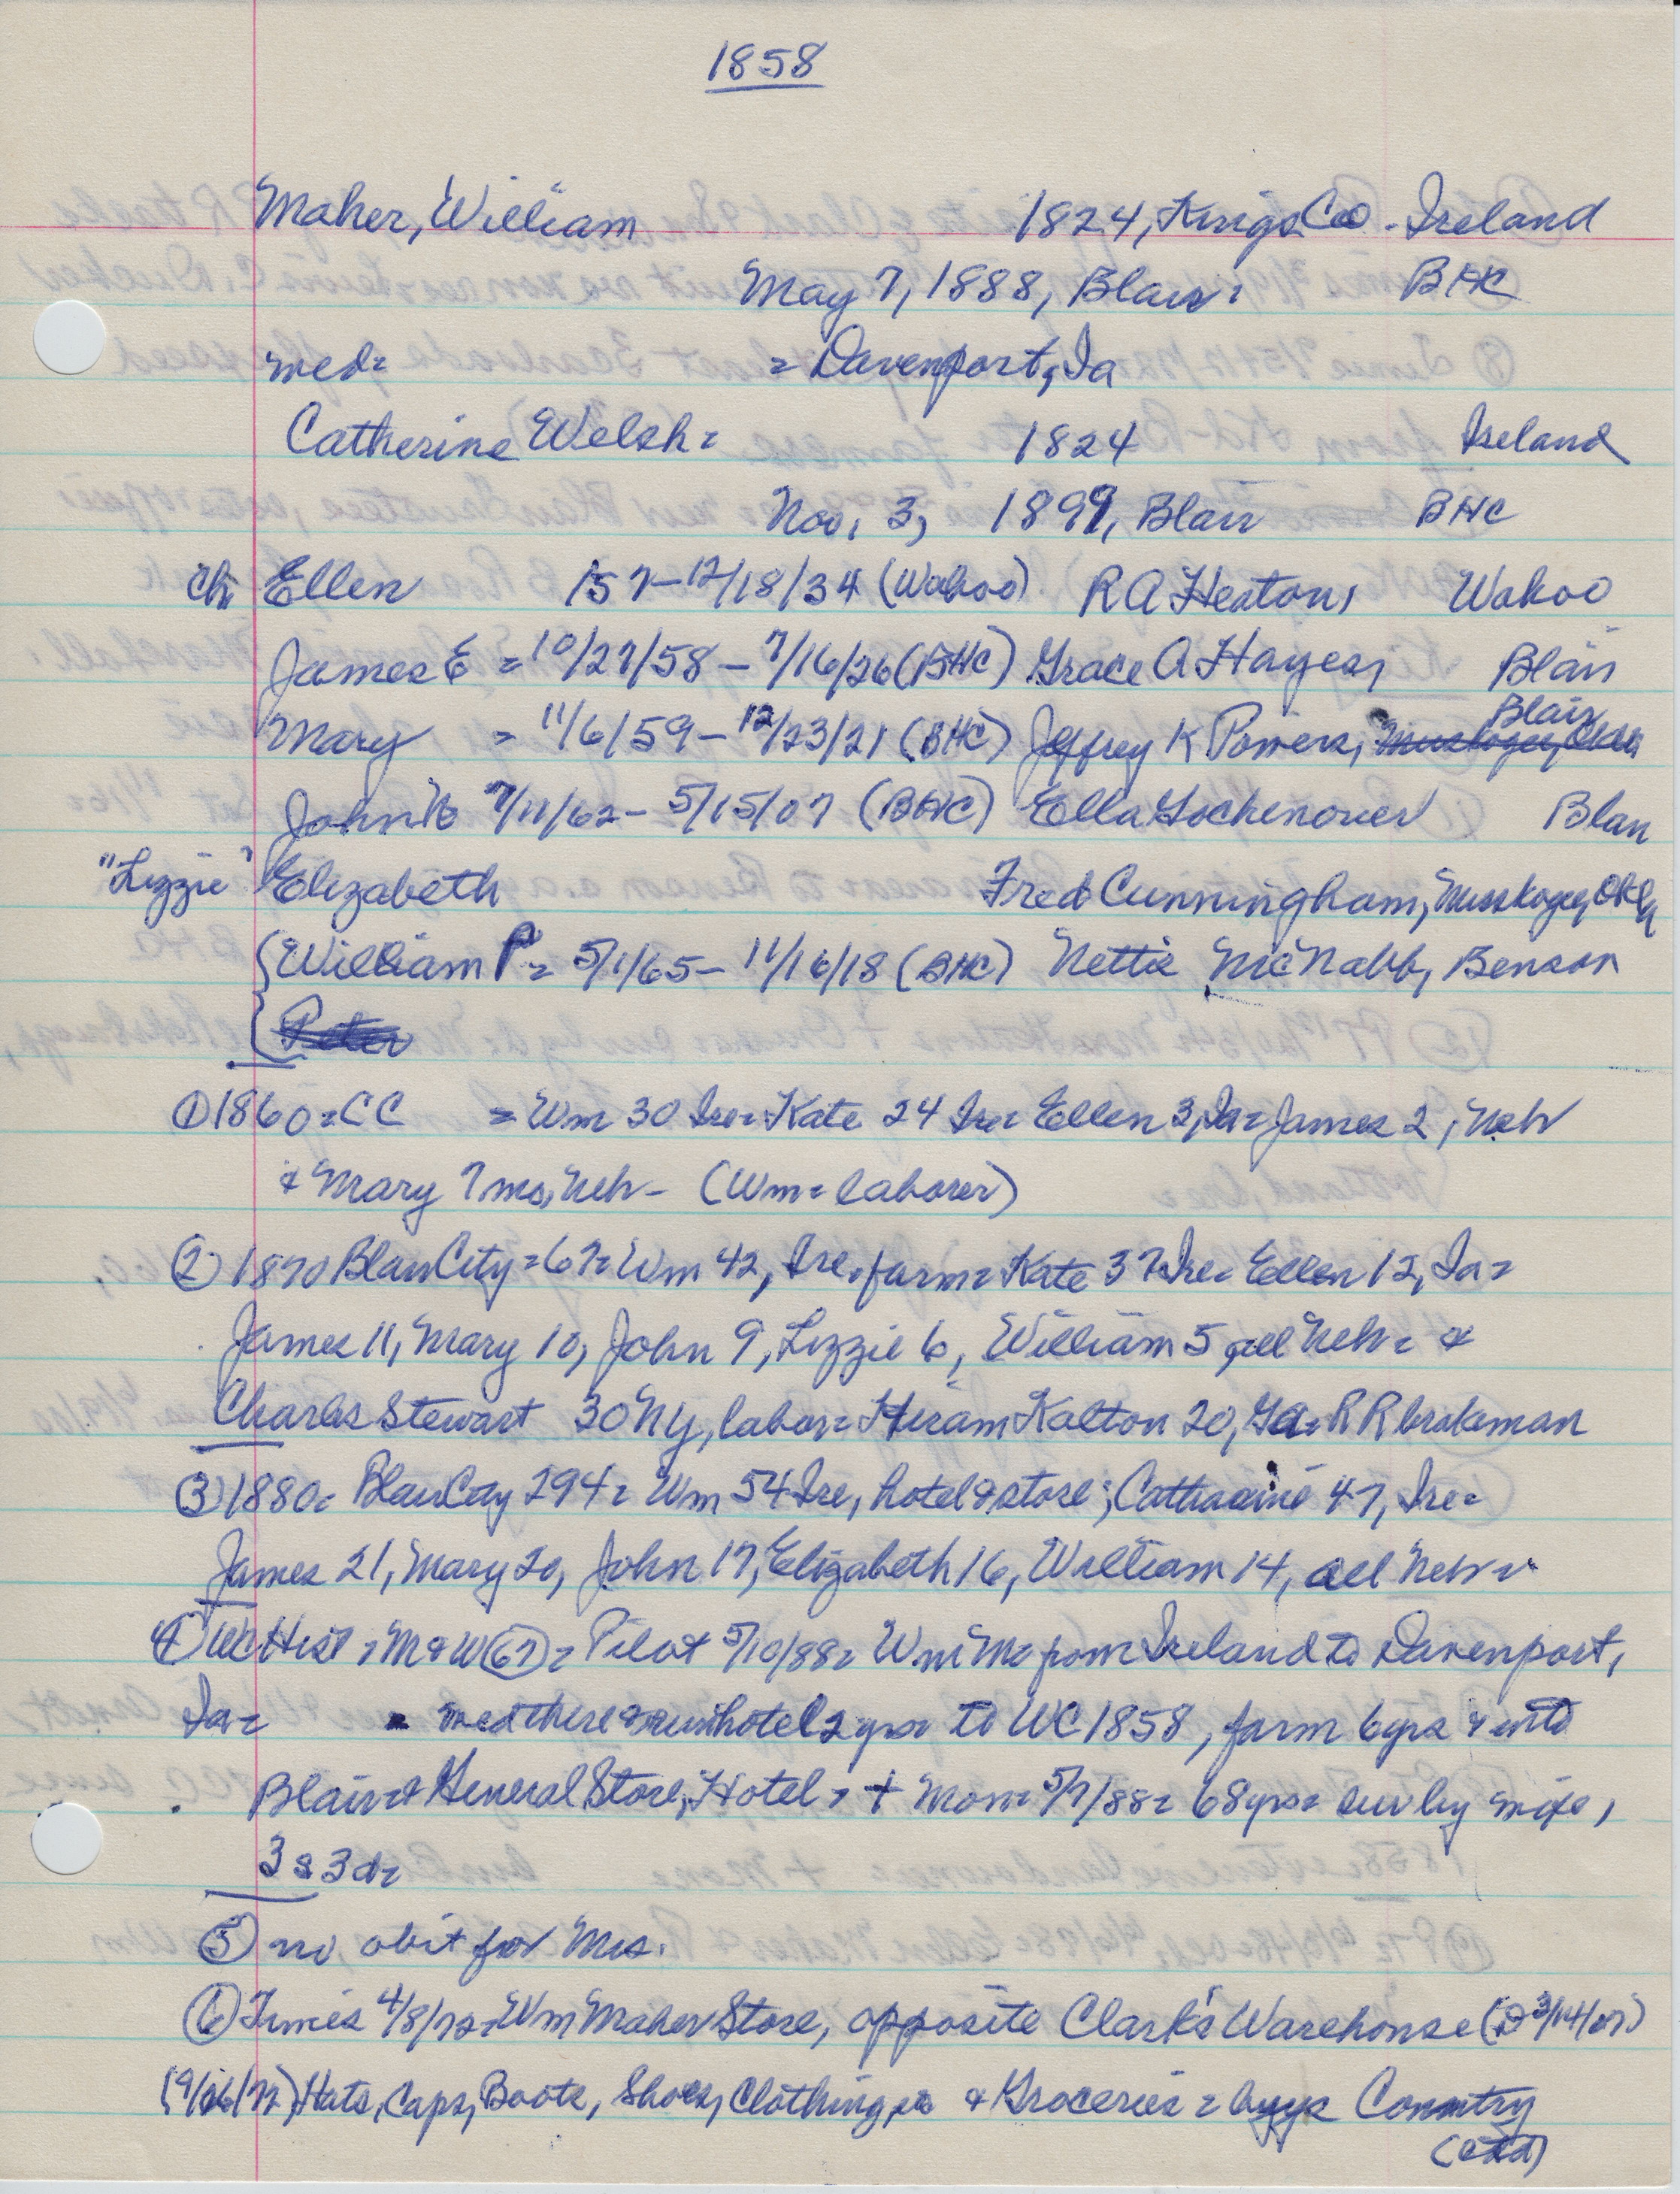 1858
Maher, William 1824, Kings Co. Ireland
May 7, 1888, Blair = BHC
med = = Davenport, Ia
Catherine Welsh = 1824 Ireland
Nov, 3, 1899, Blair BHC
Ch Ellen '57-12/18/34 (Wahoo) R A Heaton, Wahoo
James E = 10/27/58 - 7/16/26 (BHC) Grace A Hayes, Blair
Mary = 11/6/59 - 12/23/21 (BHC) Jeffrey K Powers, Muskogee, Okla Blair
John 7/11/62 - 5/15/07 (BHC) Ella Gochenouer Blair
"Lizzie" Elizabeth Fred Cunningham, Muskogee, Okla
{William P = 5/1/65 - 11/16/18 (BHC) Nettie McNabb, Benson
{Peter
① 1860 = CC = Wm 30 Ire = Kate 24 Ire = Ellen 3, Ia = James 2, Neb
& Mary 7 mo, Neb - (Wm = laborer)
② 1870 Blair City = 67 = Wm 42, Ire, farm = Kate 37 Ire = Ellen 12, Ia =
James 11, Mary 10, John 9, Lizzie 6, William 5, all Neb = &
Charles Stewart 30 NY, labor = Hiram Kolton 20, Ga = RR brakeman
③ 1880 = Blair City 294 = Wm 54 Ire, hotel & store; Catharine 47, Ire =
James 21, Mary 20, John 17, Elizabeth 16, William 14, all Neb =
④ WC Hist = M & W 67 = Pilot 5/10/88 = Wm M = from Ireland to Davenport,
Ia = = med there & run hotel 2 yrs = to WC 1858, farm 6 yrs & into
Blair = & General Store, Hotel = + Mon = 5/7/88 = 68 yrs = sur by wife,
3 s 3 d =
⑤ no obit for Mrs.
⑥ Times 4/8/72 = Wm Maher Store, opposite Clark's Warehouse (3/14/07)
(9/26/72) Hats, Caps, Boots, Shoes, Clothing & Groceries = buys Country
(ctd)